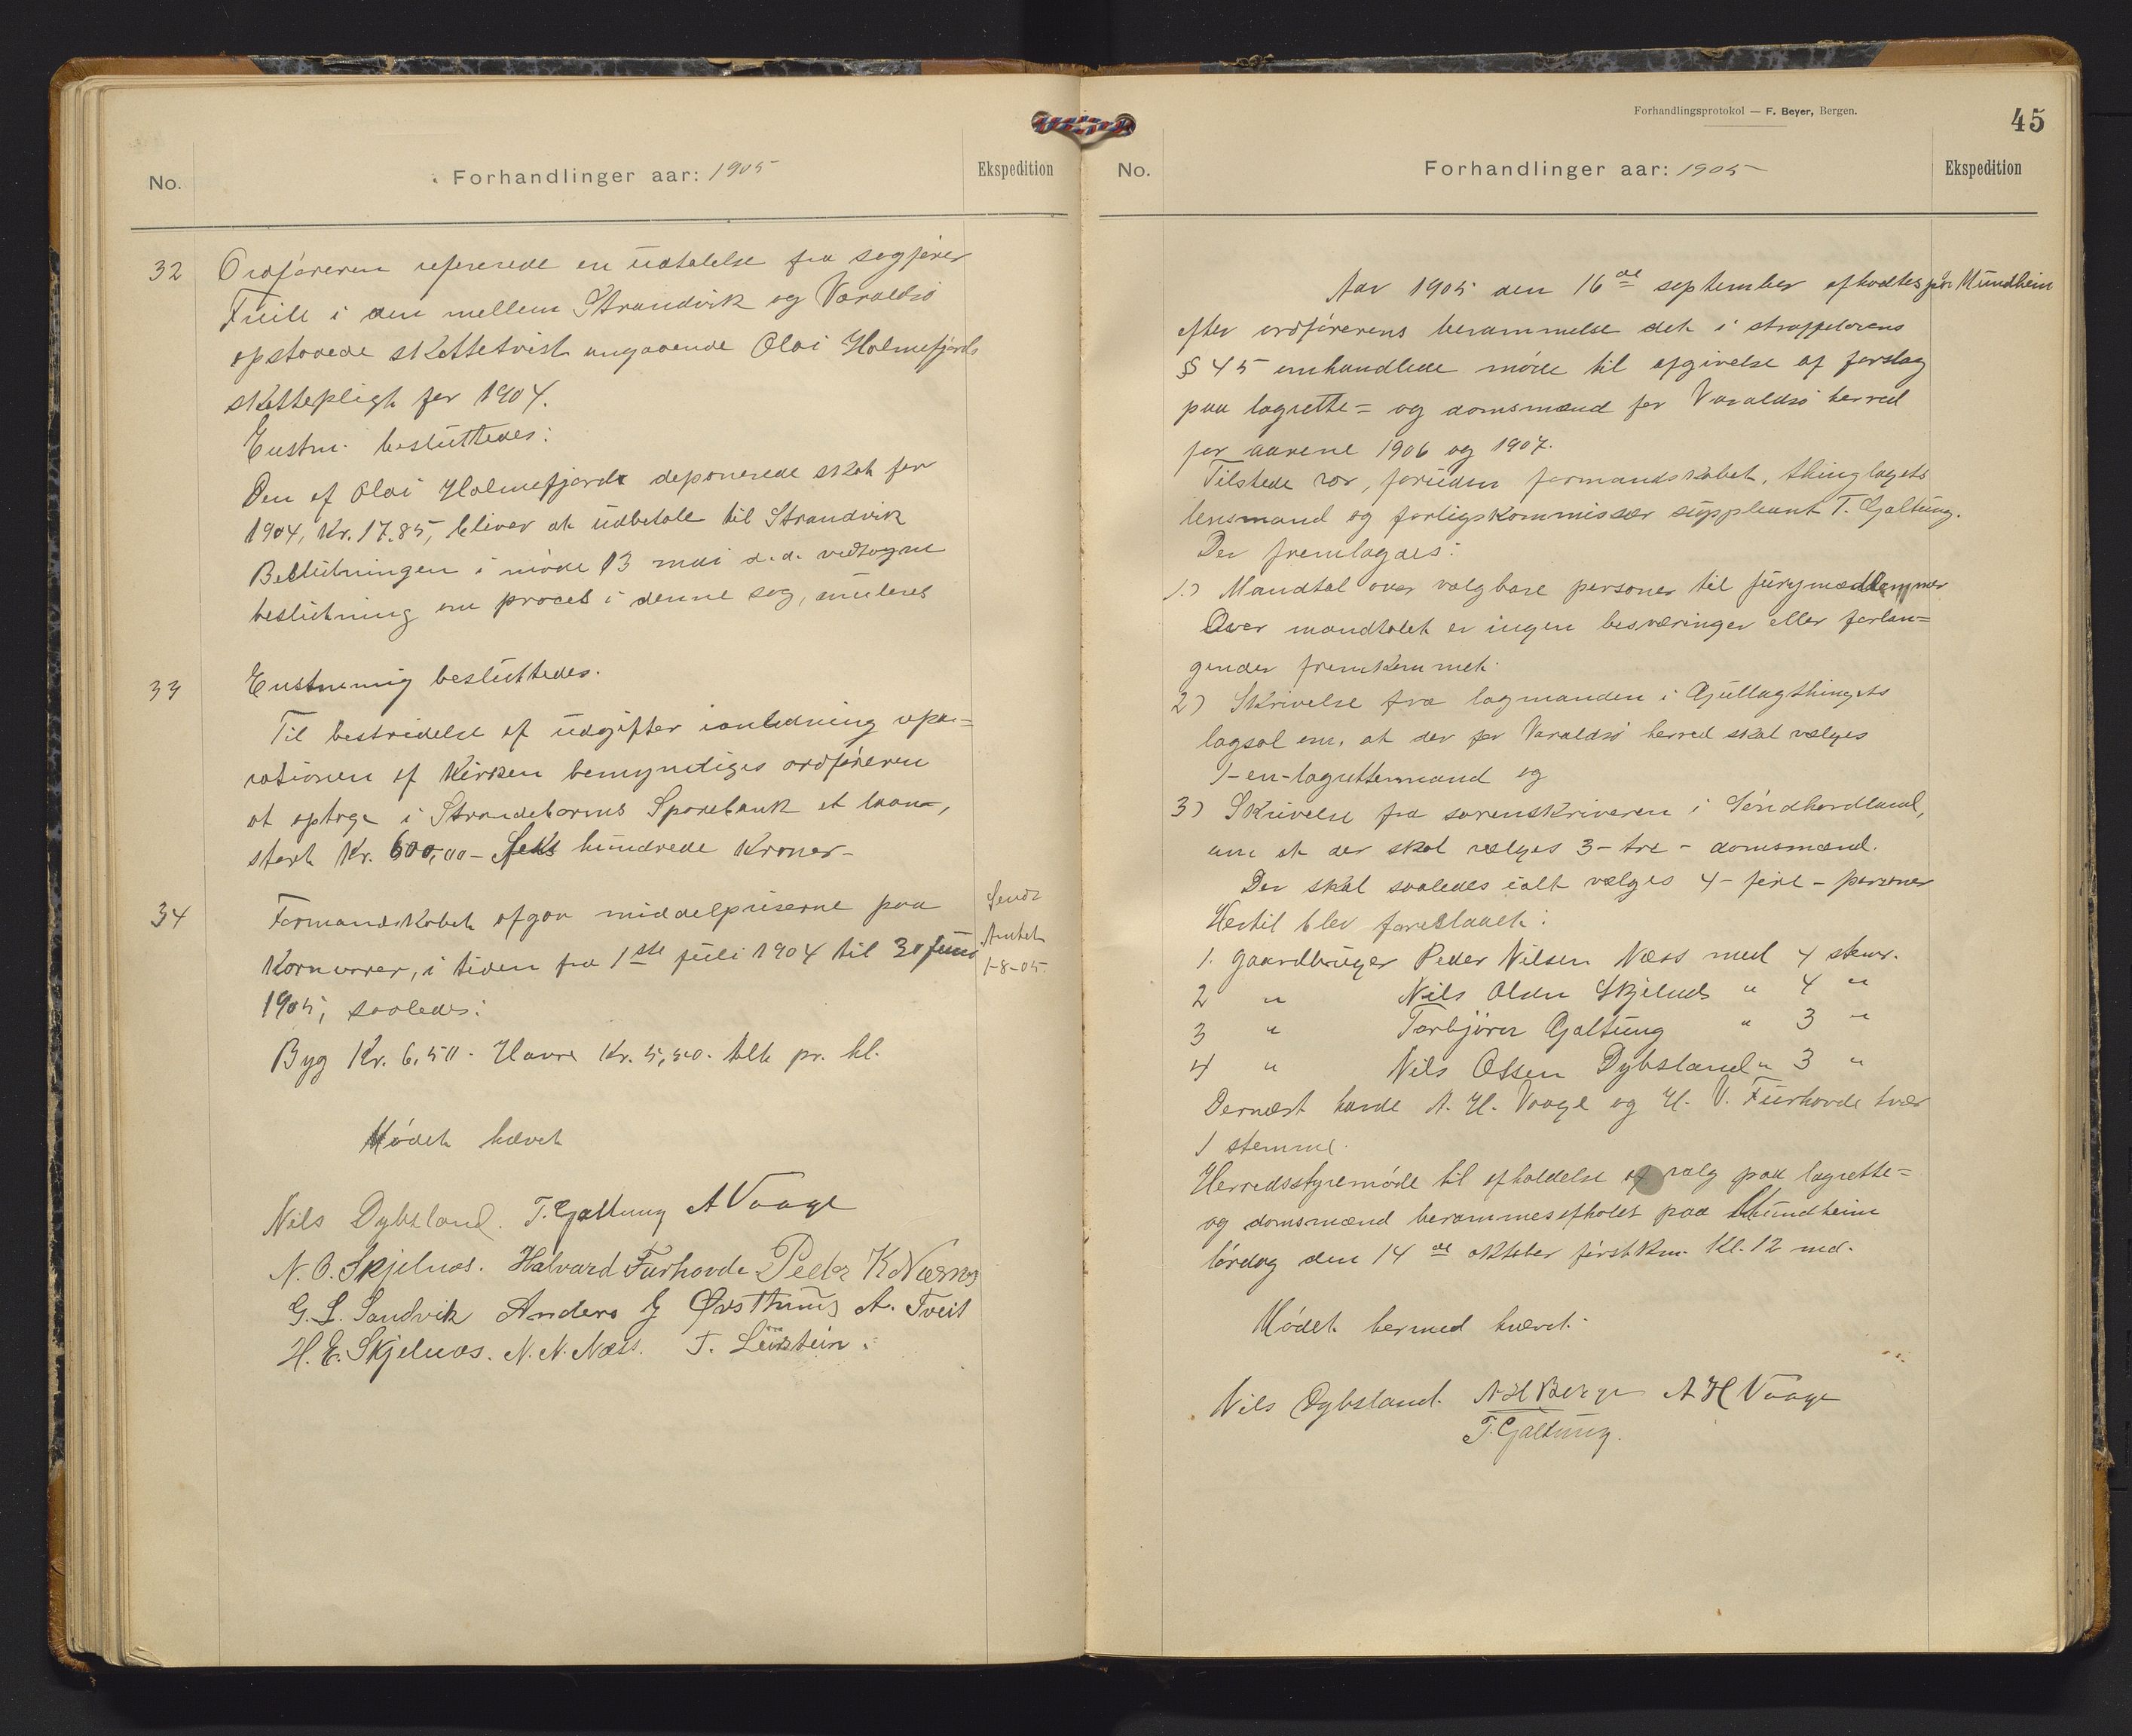 No.
Forhandlinger aar: 1905
Ekspedition
32 Ordføreren refererede en udtalelse fra sagfører
i den mellem Strandvik og Varaldsø
opstaaede skattetvist angaaende Olai Holmefjords
skattepligt for 1904.
Enstm. besluttedes:
Den af Olai Holmefjord deponerede skat for
1904, Kr. 17.85, bliver at udbetale til Strandvik
Beslutningen i møde 13 mai d.a. vedtagne
beslutning om proces i denne sag, anuleres
33 Enstemmig besluttedes.
Til bestridelse af udgifter ianledning repa=
rationen af Kirken bemyndiges ordføreren
at optage i Strandebarms Sparebank et laan,
stort Kr. 600,00 - Seks hundrede Kroner -
34 Formandskabet afgav middelpriserne paa
Kornvarer, i tiden fra 1ste juli 1904 til 30 juni
1905, saaledes:
Byg Kr. 6,50. Havre Kr. 5,50. alt pr. hl.
Sendt
Amtet
1-8-05.
Mødet hævet
Nils Dybsland. T. Galtung A Vaage
N. O. Skjelnæs. Halvard Furhovde Peder K Nærnes
G. S. Sandvik Anders G Øvsthuus A. Tveit
H. E. Skjelnæs. N. N. Næss. T.
Forhandlingsprotokol — F. Beyer, Bergen.
45
No.
Forhandlinger aar: 1905
Ekspedition
Aar 1905 den 16de september afholdtes paa Mundheim
efter ordførerens berammelse det i straffelovens
§ 45 omhandlede møde til afgivelse af forslag
paa lagrette= og domsmænd for Varaldsø herred
for aarene 1906 og 1907.
Tilstede var, foruden formandskabet, thinglagets
lensmand og forligskommissær suppleant T. Galtung.
Der fremlagdes:
1.) Mandtal over valgbare personer til jurymedlemmer
Over mandtalet er ingen besværinger eller forlan=
gender fremkommet.
2) Skrivelse fra lagmanden i Gullagthingets
lagsol om, at der for Varaldsø herred skal vælges
1-en-lagrettemand og
3) Skrivelse fra sorenskriveren i Søndhordland,
om at der skal vælges 3-tre-domsmænd.
Der skal saaledes ialt vælges 4-fire-personer
Hertil blev foreslaaet:
1. Gaardbruger Peder Nilsen Næss med 4 stemr.
2 " Nils Olsen Skjelnæs " 4 "
3 " Torbjørn Galtung " 3 "
4 " Nils Ossen Dybsland " 3 "
Dernæst havde A. H. Vaage og H. V. Furhovde hver
1 stemme.
Herredsstyremøde til afholdelse af valg paa lagrette=
og domsmænd berammes afholdt paa Mundheim
lørdag den 14de oktober førstkm. Kl. 12 md.
Mødet hermed hævet.
Nils Dybsland. N H Berge A H Vaage
T. Galtung.